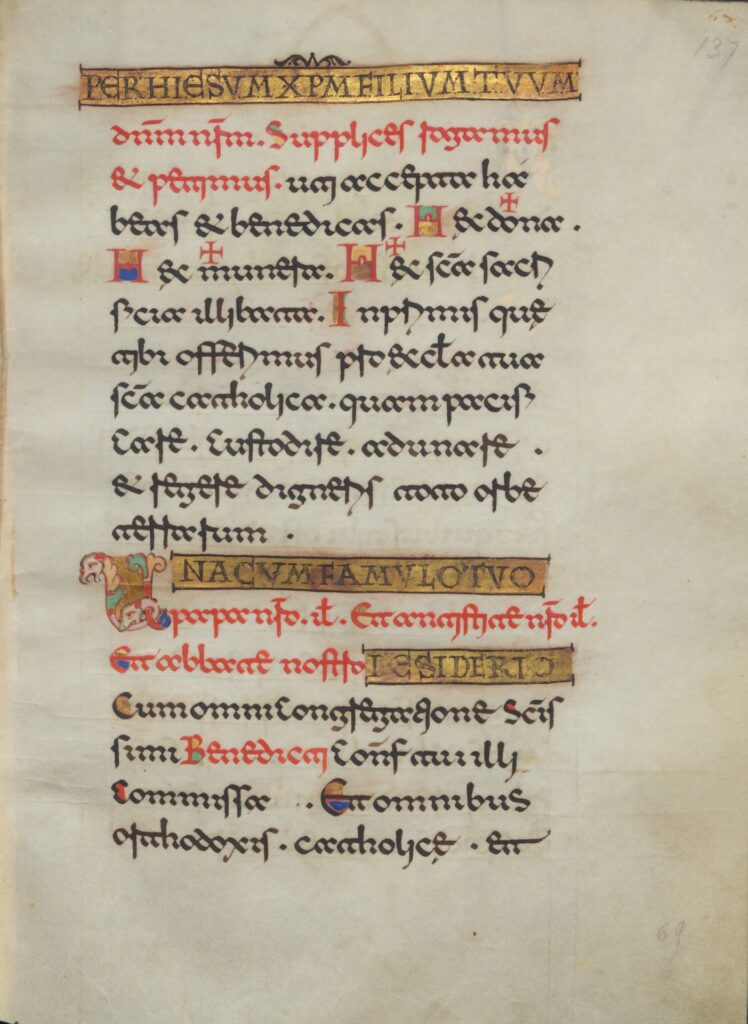 137
PER HIESVM XPM FILIVM TVVM
dn̄m nr̄m. Supplices rogamus
& petimus. uti accepta ha
beas & benedicas. H ✠ ęc dona .
H ✠ ęc munera. H ✠ ęc sc̄a sacri
ficia illibata. Inprimis que
tibi offerimus pro ęccl̄a tua
sc̄a catholica. quam pacifi
care. Custodire. adunare .
& regere digneris toto orbe
terrarum .
UNA CVM FAMVLO TVO
papa nr̄o. il̄. Et antistite nr̄o il̄.
Et abbate nostro DESIDERIO
Cum omni Congregatione Sc̄is
simi Benedicti Conf tui illi
Commissa . . Et omnibus
orthodoxis . catholicę . et
69